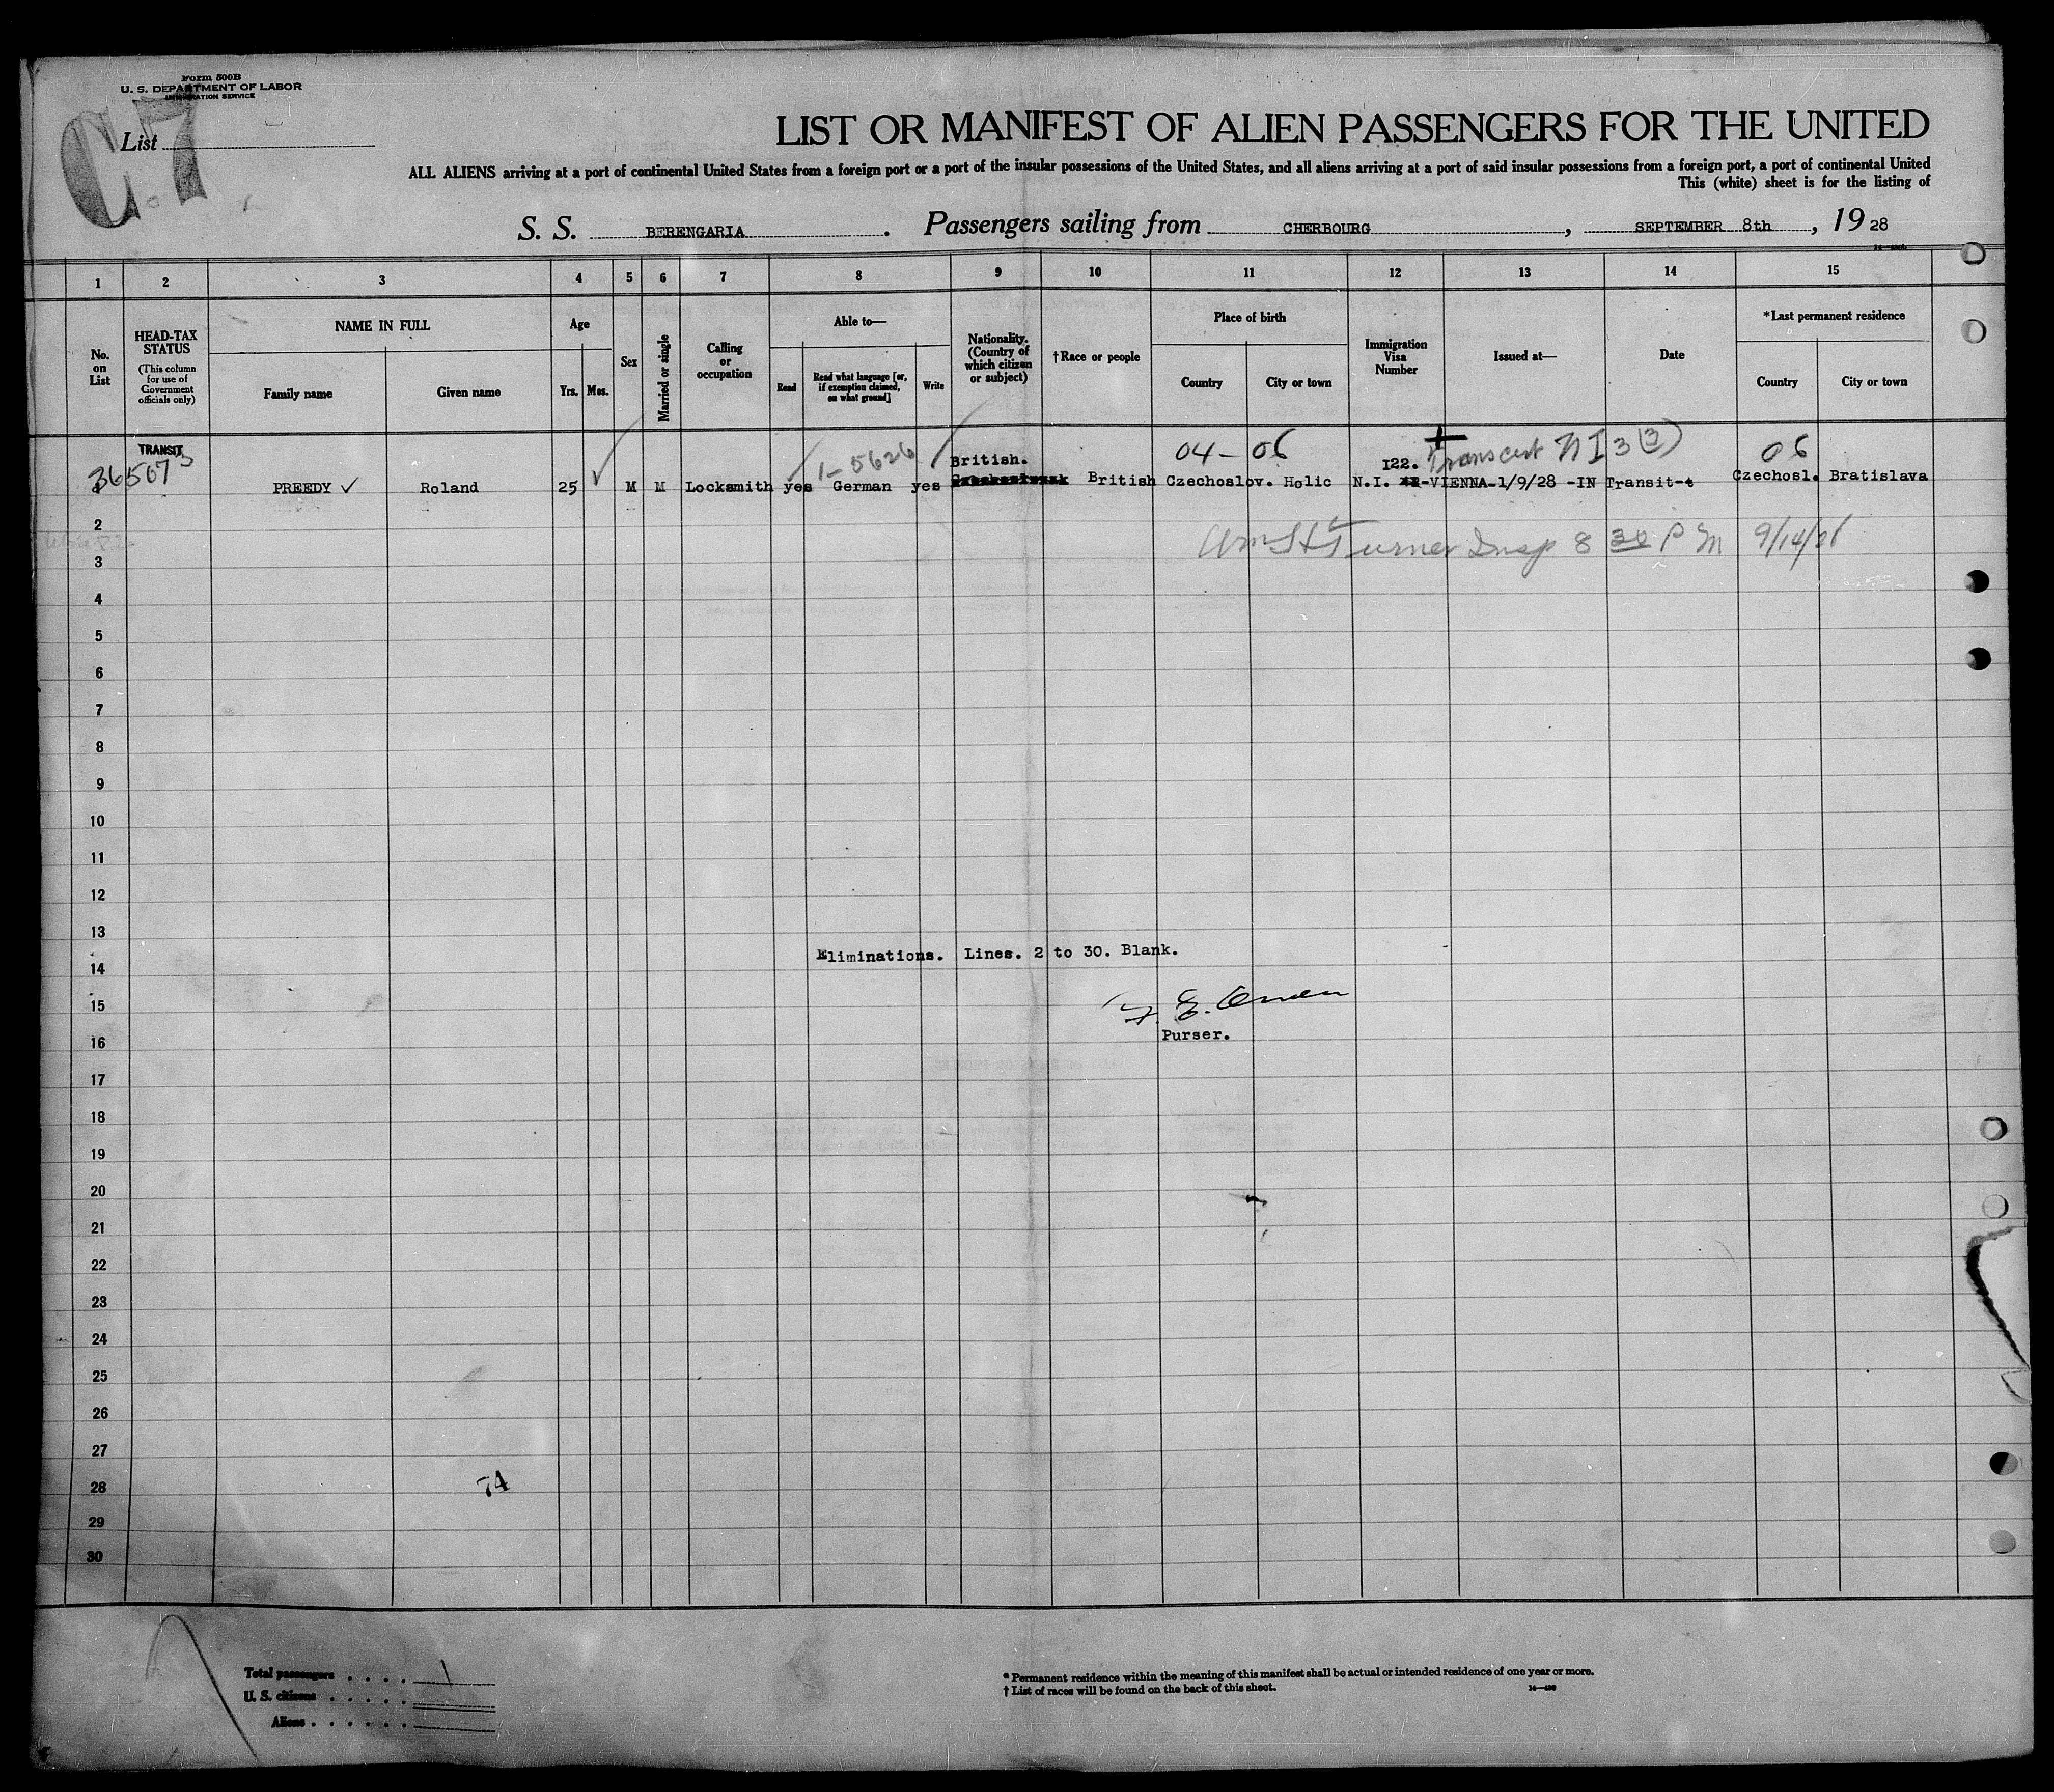 Form 500B
U. S. DEPARTMENT OF LABOR
IMMIGRATION SERVICE
C.7
List
LIST OR MANIFEST OF ALIEN PASSENGERS FOR THE UNITED
ALL ALIENS arriving at a port of continental United States from a foreign port or a port of the insular possessions of the United States, and all aliens arriving at a port of said insular possessions from a foreign port, a port of continental United
This (white) sheet is for the listing of
S. S. BERENGARIA. Passengers sailing from CHERBOURG, SEPTEMBER 8th, 19 28
1 2 3 4 5 6 7 8 9 10 11 12 13 14 15
No. on List
HEAD-TAX STATUS (This column for use of Government officials only)
NAME IN FULL
Family name
Given name
Age
Yrs. Mos.
Sex
Married or single
Calling or occupation
Able to—
Read
Read what language [or, if exemption claimed, on what ground]
Write
Nationality. (Country of which citizen or subject)
†Race or people
Place of birth
Country
City or town
Immigration Visa Number
Issued at—
Date
*Last permanent residence
Country
City or town
TRANSIT 04 - 06 Transcert NI 3 (3) 06
36507 3 1-5626 British. I22.
PREEDY ✓ Roland 25 M M Locksmith yes German yes British Czechoslov. Holic N.I. -VIENNA-1/9/28 -IN Transit- Czechosl. Bratislava
2
Turner Insp 8 30 P M 9/14/28
3
4
5
6
7
8
9
10
11
12
13
Eliminations. Lines. 2 to 30. Blank.
14
15
16
Purser.
17
18
19
20
21
22
23
24
25
26
27
28
74
29
30
Total passengers . . . . 1
U. S. citizens . . . . .
Aliens . . . . . .
* Permanent residence within the meaning of this manifest shall be actual or intended residence of one year or more.
† List of races will be found on the back of this sheet.